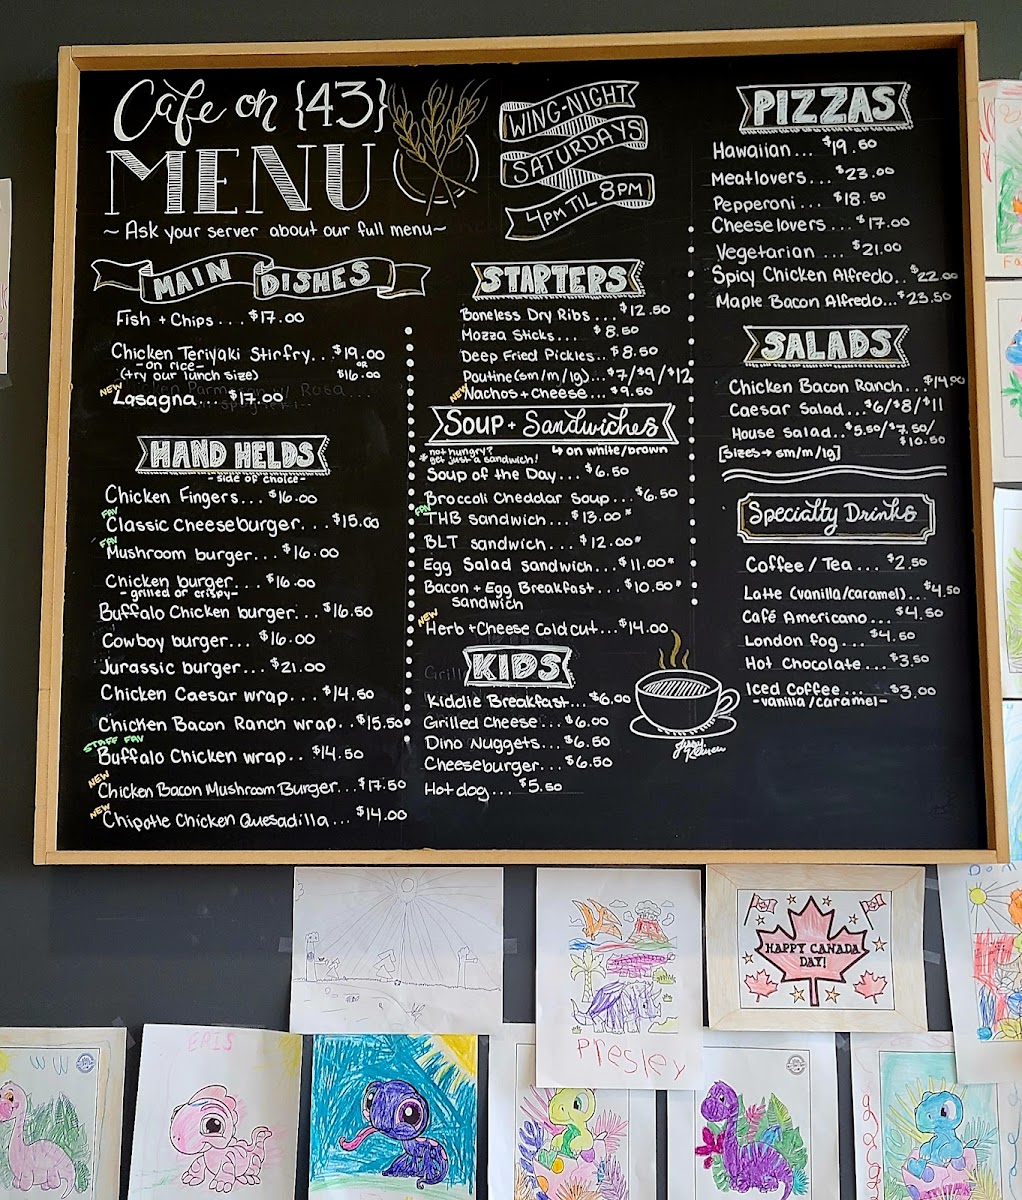 Cafe on {43}
MENU
~ Ask your server about our full menu ~
WING-NIGHT
SATURDAYS
4PM TIL 8PM
MAIN DISHES
Fish + Chips... $17.00
Chicken Teriyaki Stirfry... $19.00
-on rice- or
(try our lunch size) $16.00
NEW
Lasagna... $17.00
HAND HELDS
-side of choice-
Chicken Fingers... $16.00
FAV
Classic Cheeseburger... $15.00
FAV
Mushroom burger... $16.00
Chicken burger... $16.00
-grilled or crispy-
Buffalo Chicken burger... $16.50
Cowboy burger... $16.00
Jurassic burger... $21.00
Chicken Caesar wrap... $14.50
Chicken Bacon Ranch wrap.. $15.50
STAFF FAV
Buffalo Chicken wrap.. $14.50
NEW
Chicken Bacon Mushroom Burger... $17.50
NEW
Chipotle Chicken Quesadilla... $14.00
STARTERS
Boneless Dry Ribs... $12.50
Mozza Sticks... $8.50
Deep Fried Pickles.. $8.50
Poutine (sm/m/lg)... $7/$9/$12
NEW
Nachos + Cheese... $9.50
SOUP + Sandwiches
* not hungry? ↳ on white/brown
get just a sandwich!
Soup of the Day... $6.50
Broccoli Cheddar Soup... $6.50
FAV
THB sandwich... $13.00*
BLT sandwich... $12.00*
Egg Salad sandwich... $11.00*
Bacon + Egg Breakfast... $10.50*
sandwich
NEW
Herb + Cheese Coldcut... $14.00
KIDS
Kiddie Breakfast... $6.00
Grilled Cheese... $6.00
Dino Nuggets... $6.50
Cheeseburger... $6.50
Hotdog... $5.50
PIZZAS
Hawaiian... $19.50
Meatlovers... $23.00
Pepperoni... $18.50
Cheeselovers... $17.00
Vegetarian... $21.00
Spicy Chicken Alfredo.. $22.00
Maple Bacon Alfredo... $23.50
SALADS
Chicken Bacon Ranch... $14.00
Caesar Salad... $6/$8/$11
House Salad.. $5.50/$7.50/
$10.50
[sizes → sm/m/lg]
Specialty Drinks
Coffee / Tea... $2.50
Latte (vanilla/caramel)... $4.50
Café Americano... $4.50
London Fog... $4.50
Hot Chocolate... $3.50
Iced Coffee... $3.00
-vanilla/caramel-
HAPPY CANADA
DAY!
Presley